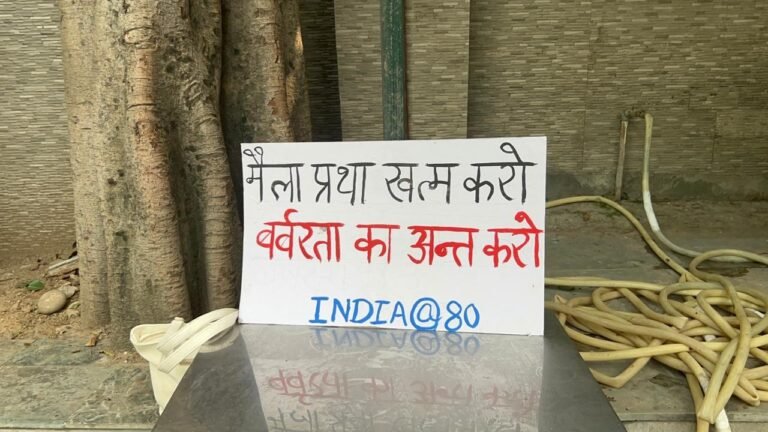 मैला प्रथा खत्म करो
बर्वरता का अन्त करो
INDIA@80